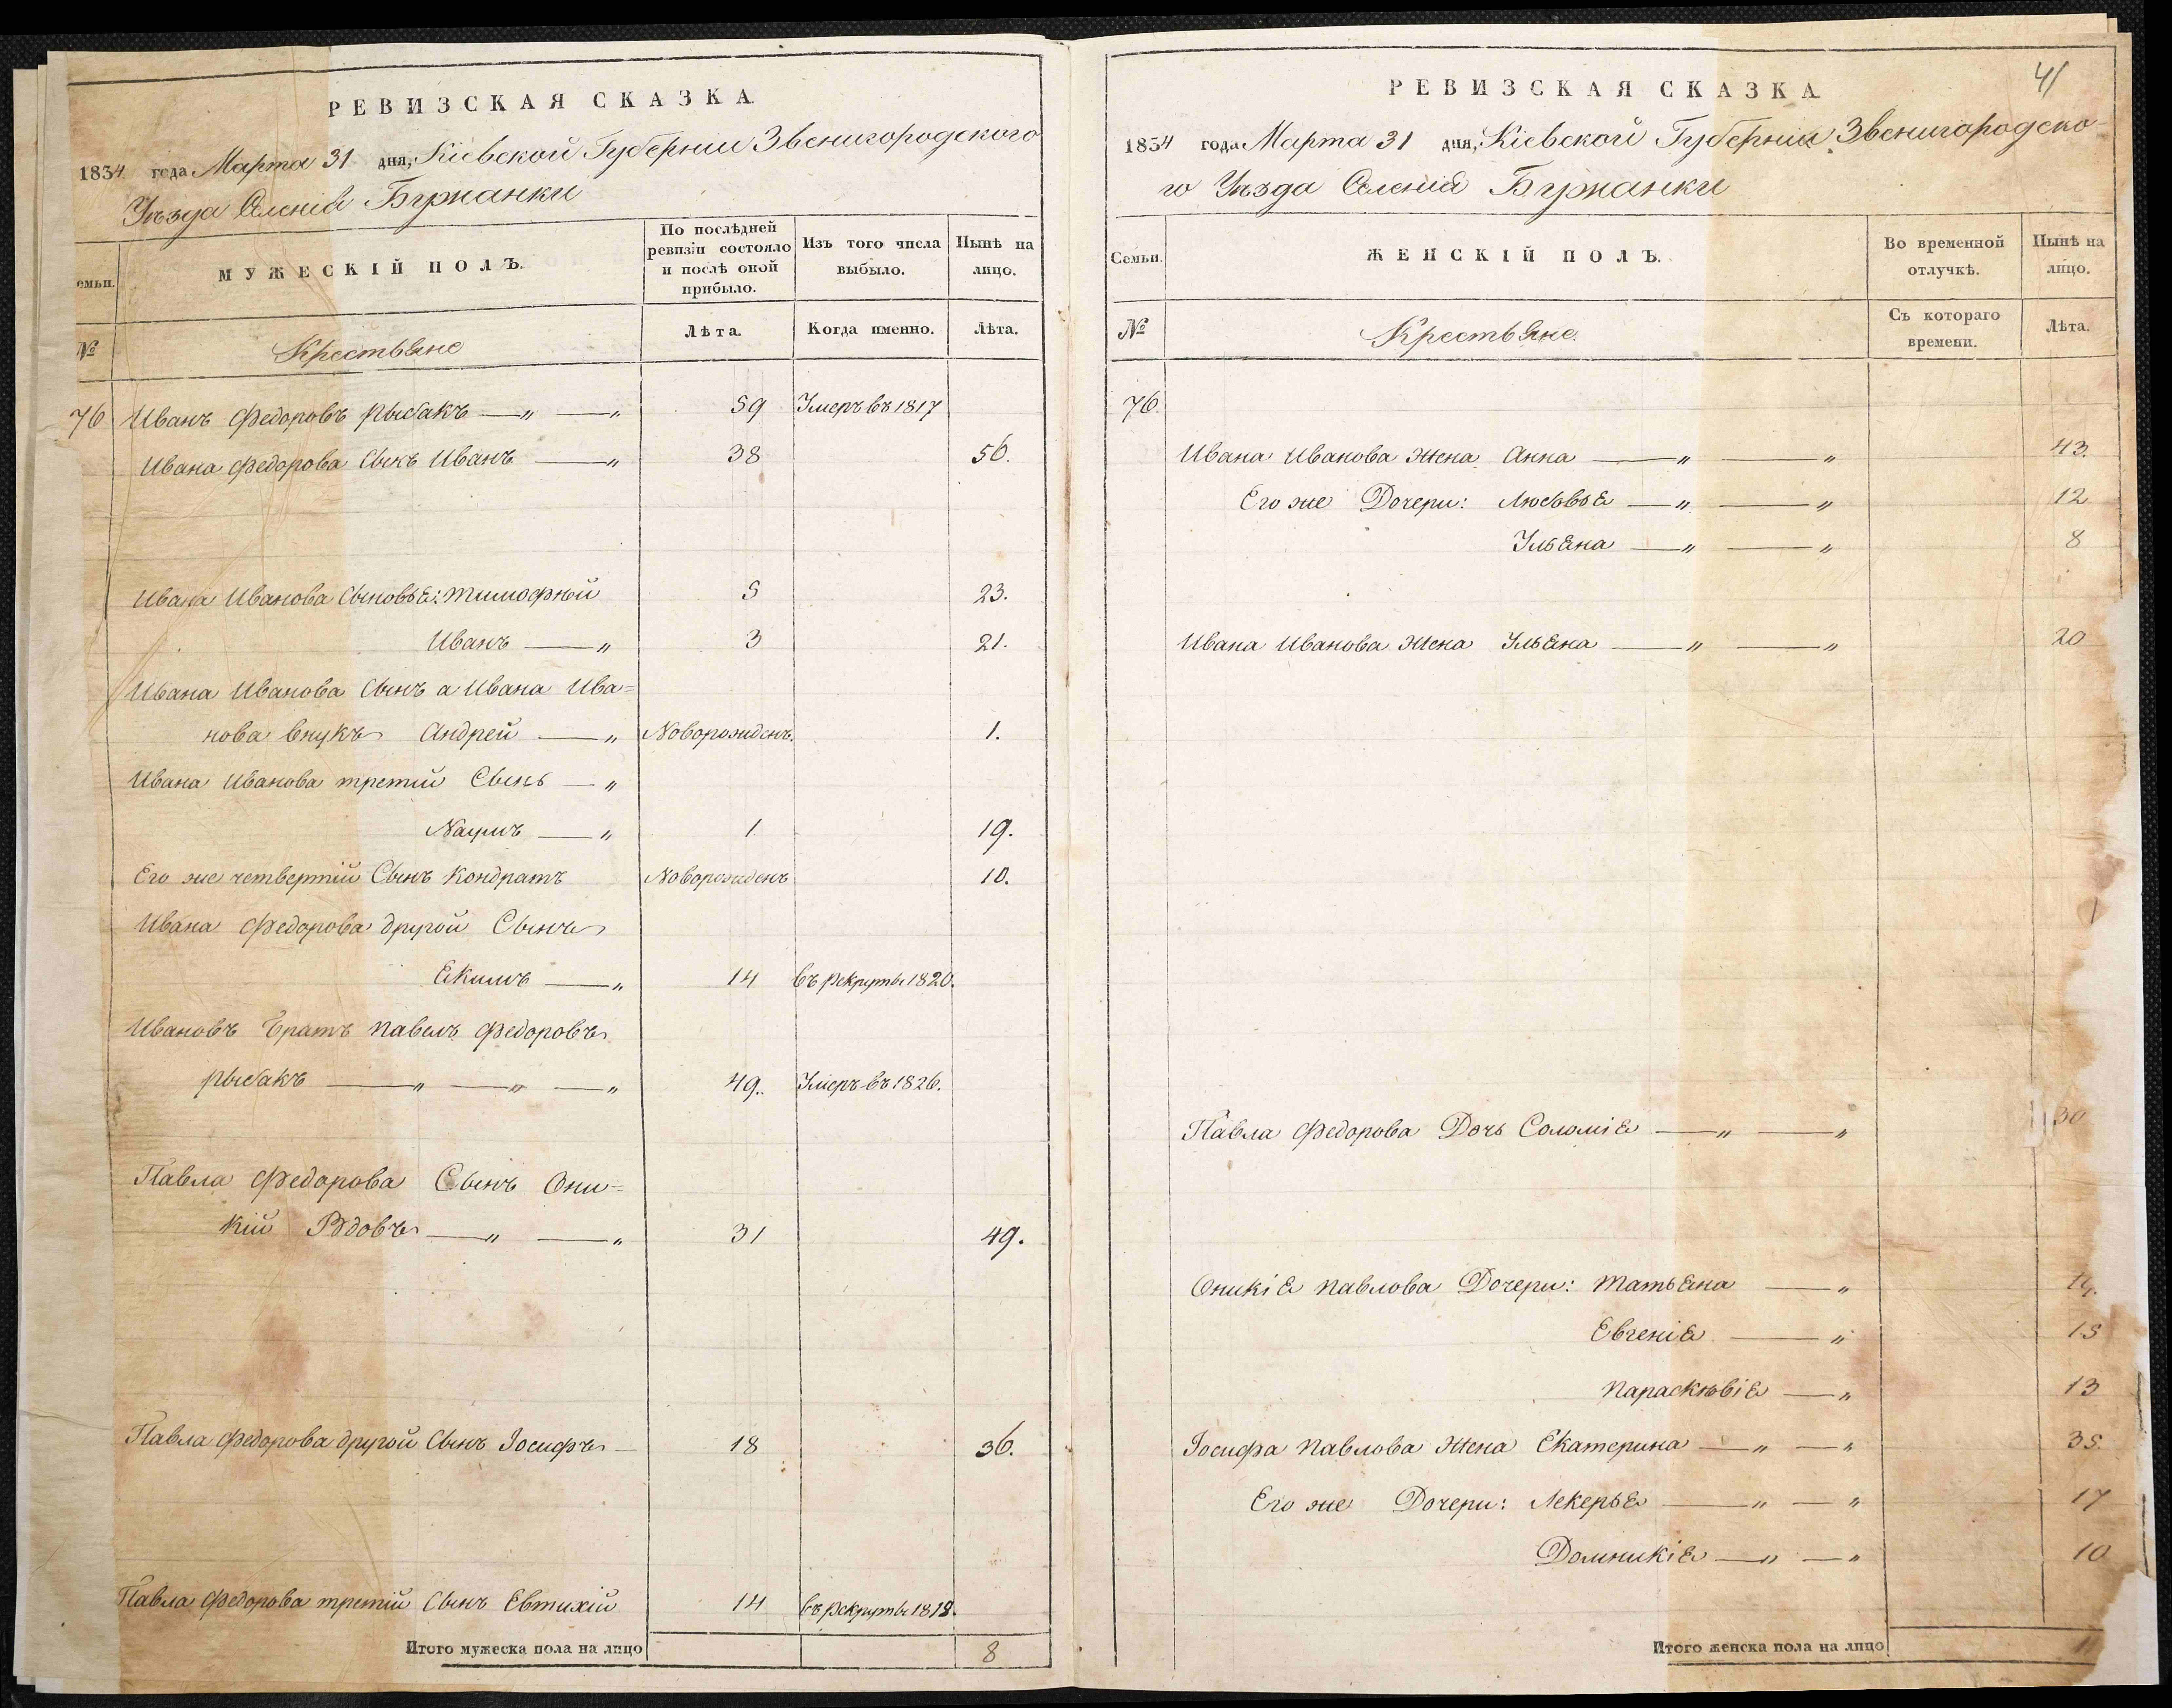 РЕВИЗСКАЯ СКАЗКА
1834 года Марта 31 дня, Кіевской Губерніи Звенигородского
Уѣзда Селенія Бужанки
емьи.
МУЖЕСКІЙ ПОЛЪ.
По послѣдней ревизіи состояло и послѣ оной прибыло.
Изъ того числа выбыло.
Нынѣ на лицо.
№
Крестьяне
Лѣта.
Когда именно.
Лѣта.
76 Иванъ Федоровъ Рыбакъ — „ — „ 59 Умеръ въ 1817
Ивана Федорова Сынъ Иванъ — „ 38 56.
Ивана Иванова Сыновья: Тимофѣй 5 23.
Иванъ — „ 3 21.
Ивана Иванова Сынъ а Ивана Ива=
нова внукъ Андрей — „ Новорожденъ. 1.
Ивана Иванова третій Сынъ — „
Наумъ — „ 1 19.
Его же четвертій Сынъ Кондратъ Новорожденъ 10.
Ивана Федорова другой Сынъ
Якимъ — „ 14 въ рекруты 1820.
Ивановъ братъ Павелъ Федоровъ
Рыбакъ — „ — „ — „ 49. Умеръ въ 1826.
Павла Федорова Сынъ Они=
кій Вдовъ — „ — „ 31 49.
Павла Федорова другой Сынъ Іосифъ — 18 36.
Павла Федорова третій Сынъ Евтихій 14 въ рекруты 1818.
Итого мужеска пола на лицо 8
41
РЕВИЗСКАЯ СКАЗКА
1834 года Марта 31 дня, Кіевской Губерніи Звенигородско-
го Уѣзда Селенія Бужанки
Семьи.
ЖЕНСКІЙ ПОЛЪ.
Во временной отлучкѣ.
Нынѣ на лицо.
№
Крестьяне.
Съ котораго времени.
Лѣта.
76.
Ивана Иванова Жена Анна — „ — „ 43.
Его же Дочери: Любовья — „ — „ 12
Ульяна — „ — „ 8
Ивана Иванова Жена Ульяна — „ — „ 20
Павла Федорова Дочь Соломія — „ — „ 30
Оникія Павлова Дочери: Татьяна — „
Евгенія — „ 15
Параскѣвія — „ 13
Іосифа Павлова Жена Екатерина — „ — „ 35.
Его же Дочери: Лекерья — „ — „ 17
Домникія — „ — „ 10
Итого женска пола на лицо